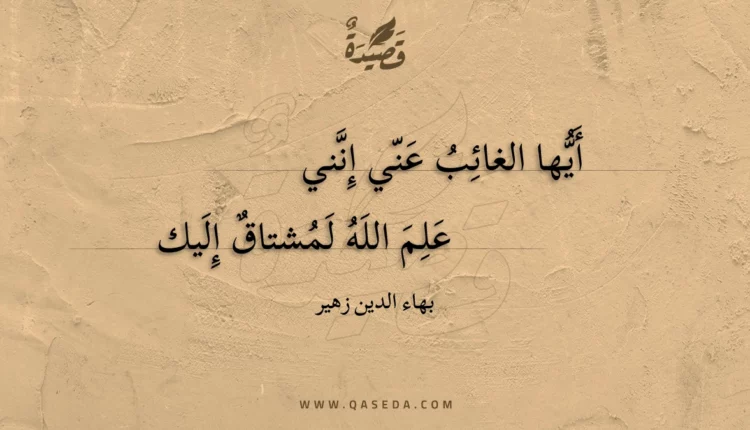 قَصِيدَةٌ
أَيُّها الغائِبُ عَنّي إِنَّني
عَلِمَ اللَهُ لَمُشتاقٌ إِلَيك
بهاء الدين زهير
WWW.QASEDA.COM